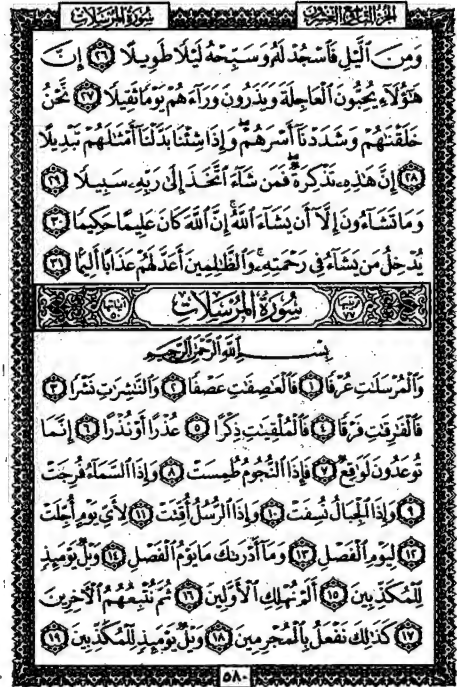 الجزء التاسع والعشرون سورة المرسلات
وَمِنَ ٱلَّيْلِ فَٱسْجُدْ لَهُۥ وَسَبِّحْهُ لَيْلًا طَوِيلًا ٢٦ إِنَّ
هَٰٓؤُلَآءِ يُحِبُّونَ ٱلْعَاجِلَةَ وَيَذَرُونَ وَرَآءَهُمْ يَوْمًا ثَقِيلًا ٢٧ نَّحْنُ
خَلَقْنَٰهُمْ وَشَدَدْنَآ أَسْرَهُمْ ۖ وَإِذَا شِئْنَا بَدَّلْنَآ أَمْثَٰلَهُمْ تَبْدِيلًا
٢٨ إِنَّ هَٰذِهِۦ تَذْكِرَةٌ ۖ فَمَن شَآءَ ٱتَّخَذَ إِلَىٰ رَبِّهِۦ سَبِيلًا ٢٩
وَمَا تَشَآءُونَ إِلَّآ أَن يَشَآءَ ٱللَّهُ ۚ إِنَّ ٱللَّهَ كَانَ عَلِيمًا حَكِيمًا ٣٠
يُدْخِلُ مَن يَشَآءُ فِى رَحْمَتِهِۦ ۚ وَٱلظَّٰلِمِينَ أَعَدَّ لَهُمْ عَذَابًا أَلِيمًۢا ٣١
ترتيبها ٧٧ سُورَةُ المُرْسَلَاتِ آياتها ٥٠
بِسْمِ ٱللَّهِ ٱلرَّحْمَٰنِ ٱلرَّحِيمِ
وَٱلْمُرْسَلَٰتِ عُرْفًا ١ فَٱلْعَٰصِفَٰتِ عَصْفًا ٢ وَٱلنَّٰشِرَٰتِ نَشْرًا ٣
فَٱلْفَٰرِقَٰتِ فَرْقًا ٤ فَٱلْمُلْقِيَٰتِ ذِكْرًا ٥ عُذْرًا أَوْ نُذْرًا ٦ إِنَّمَا
تُوعَدُونَ لَوَٰقِعٌ ٧ فَإِذَا ٱلنُّجُومُ طُمِسَتْ ٨ وَإِذَا ٱلسَّمَآءُ فُرِجَتْ
٩ وَإِذَا ٱلْجِبَالُ نُسِفَتْ ١٠ وَإِذَا ٱلرُّسُلُ أُقِّتَتْ ١١ لِأَىِّ يَوْمٍ أُجِّلَتْ
١٢ لِيَوْمِ ٱلْفَصْلِ ١٣ وَمَآ أَدْرَىٰكَ مَا يَوْمُ ٱلْفَصْلِ ١٤ وَيْلٌ يَوْمَئِذٍ
لِّلْمُكَذِّبِينَ ١٥ أَلَمْ نُهْلِكِ ٱلْأَوَّلِينَ ١٦ ثُمَّ نُتْبِعُهُمُ ٱلْءَاخِرِينَ
١٧ كَذَٰلِكَ نَفْعَلُ بِٱلْمُجْرِمِينَ ١٨ وَيْلٌ يَوْمَئِذٍ لِّلْمُكَذِّبِينَ ١٩
٥٨٠